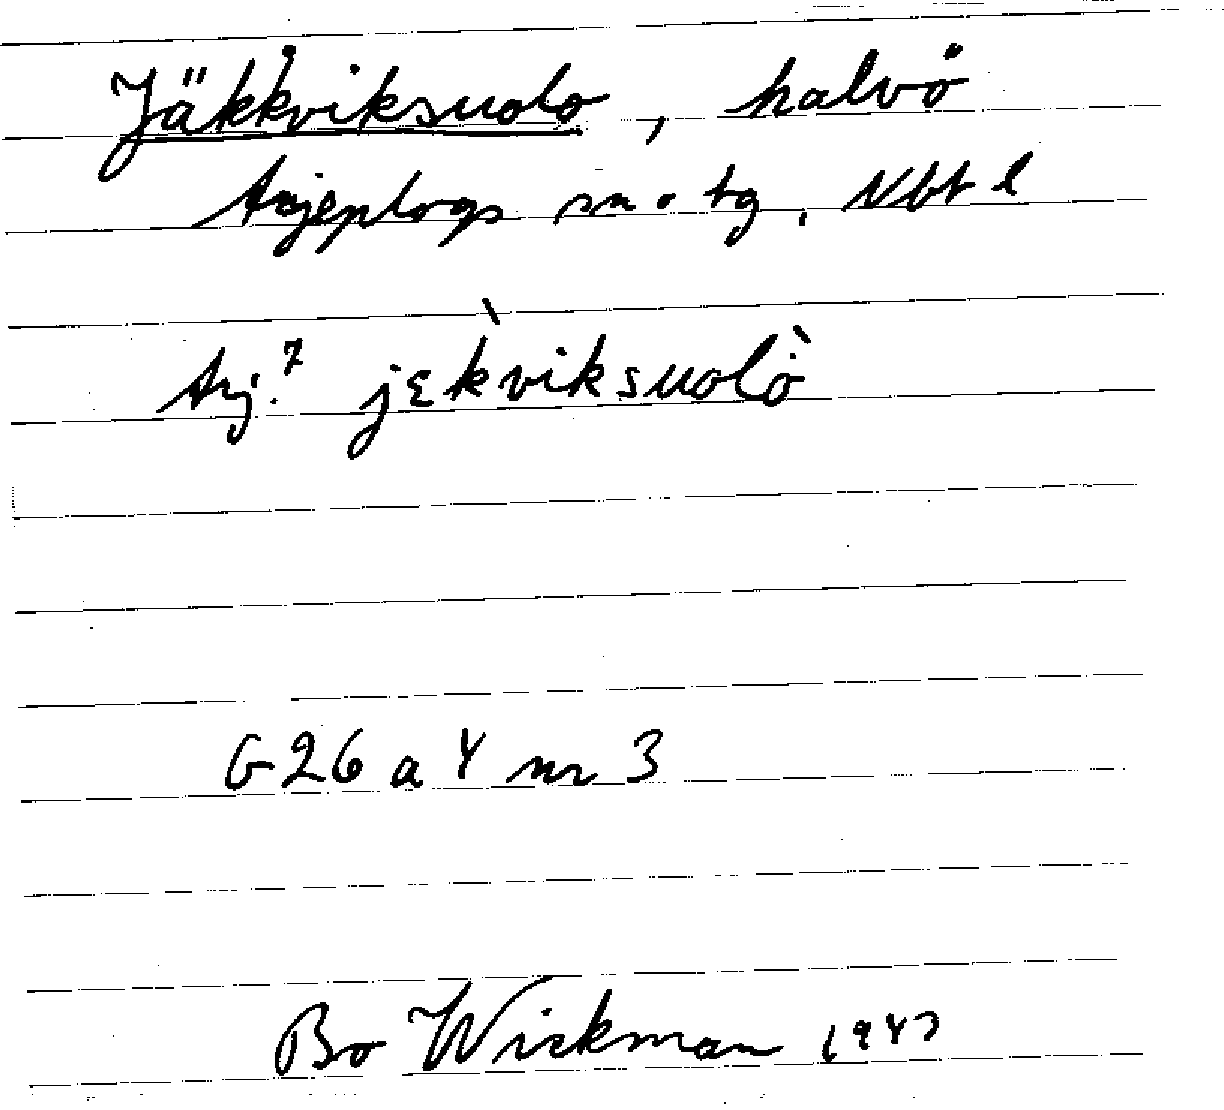 Jäkkviksuolo, halvö
Arjeplogs sn o tg, Nbt l
Arj.⁷ jɛk̀viksuolȯ̀
G 26 a 4 nr 3
Bo Wickman 1947